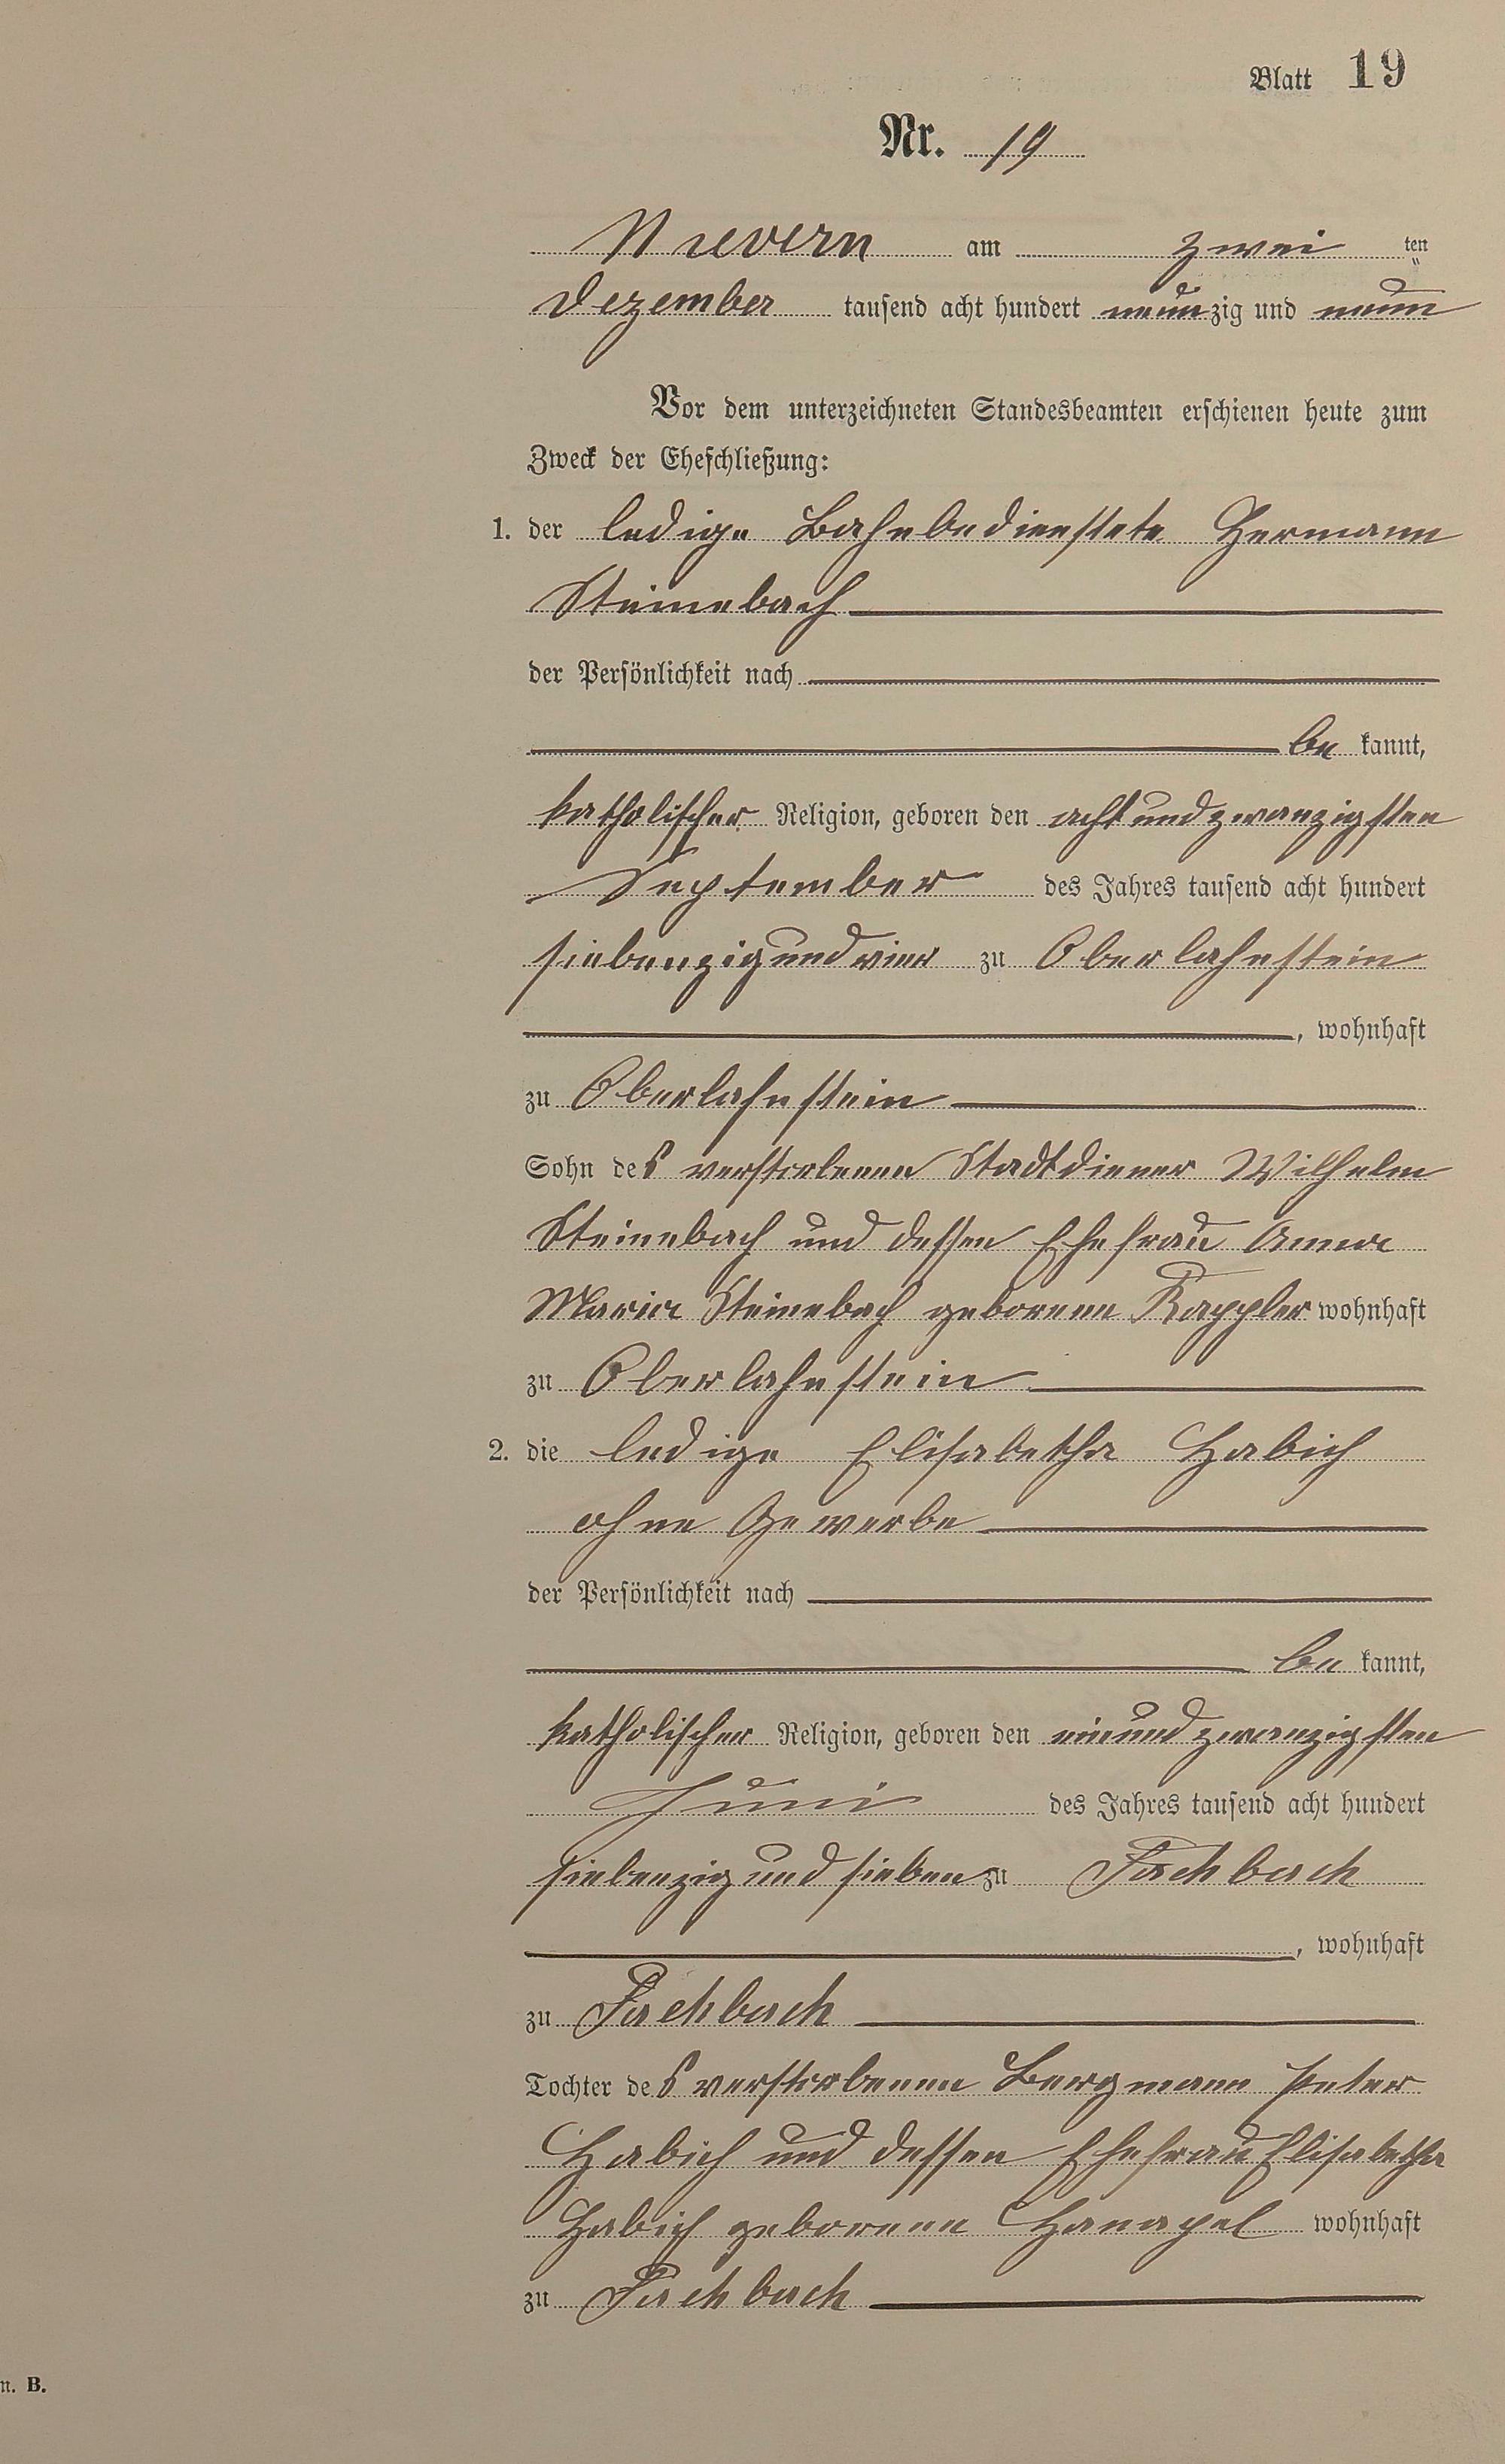 Blatt 19
Nr. 19
Nievern am zwei ten
Dezember tausend acht hundert neunzig und neun
Vor dem unterzeichneten Standesbeamten erschienen heute zum
Zweck der Eheschließung:
1. der ledige Bahnbedienstete Hermann
Steinebach
der Persönlichkeit nach
be kannt,
katholischer Religion, geboren den achtundzwanzigsten
September des Jahres tausend acht hundert
siebenzig und vier zu Oberlahnstein
, wohnhaft
zu Oberlahnstein
Sohn des verstorbenen Stadtdiener Wilhelm
Steinebach und dessen Ehefrau Anna
Maria Steinebach geborene Kappler wohnhaft
zu Oberlahnstein
2. die ledige Elisabetha Habich
ohne Gewerbe
der Persönlichkeit nach
be kannt,
katholischer Religion, geboren den einundzwanzigsten
Juni des Jahres tausend acht hundert
siebenzig und sieben zu Fachbach
, wohnhaft
zu Fachbach
Tochter des verstorbenen Bergmann Peter
Habich und dessen Ehefrau Elisabetha
Habich geborene wohnhaft
zu Fachbach
n. B.